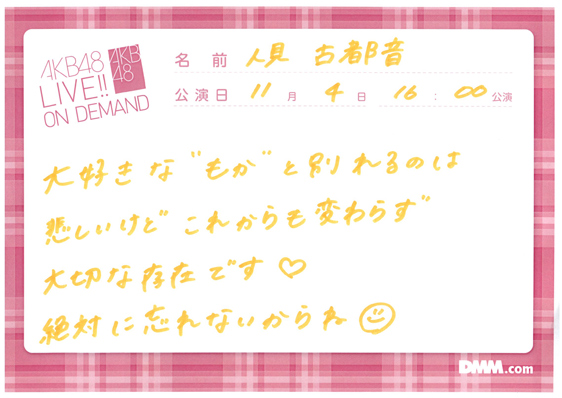 AKB48
LIVE!!
ON DEMAND
AKB
48
名前 人見 古都音
公演日 11月 4日 16:00公演
大好きな"もか"と別れるのは
悲しいけど これからも変わらず
大切な存在です♡
絶対に忘れないからね☺
DMM.com